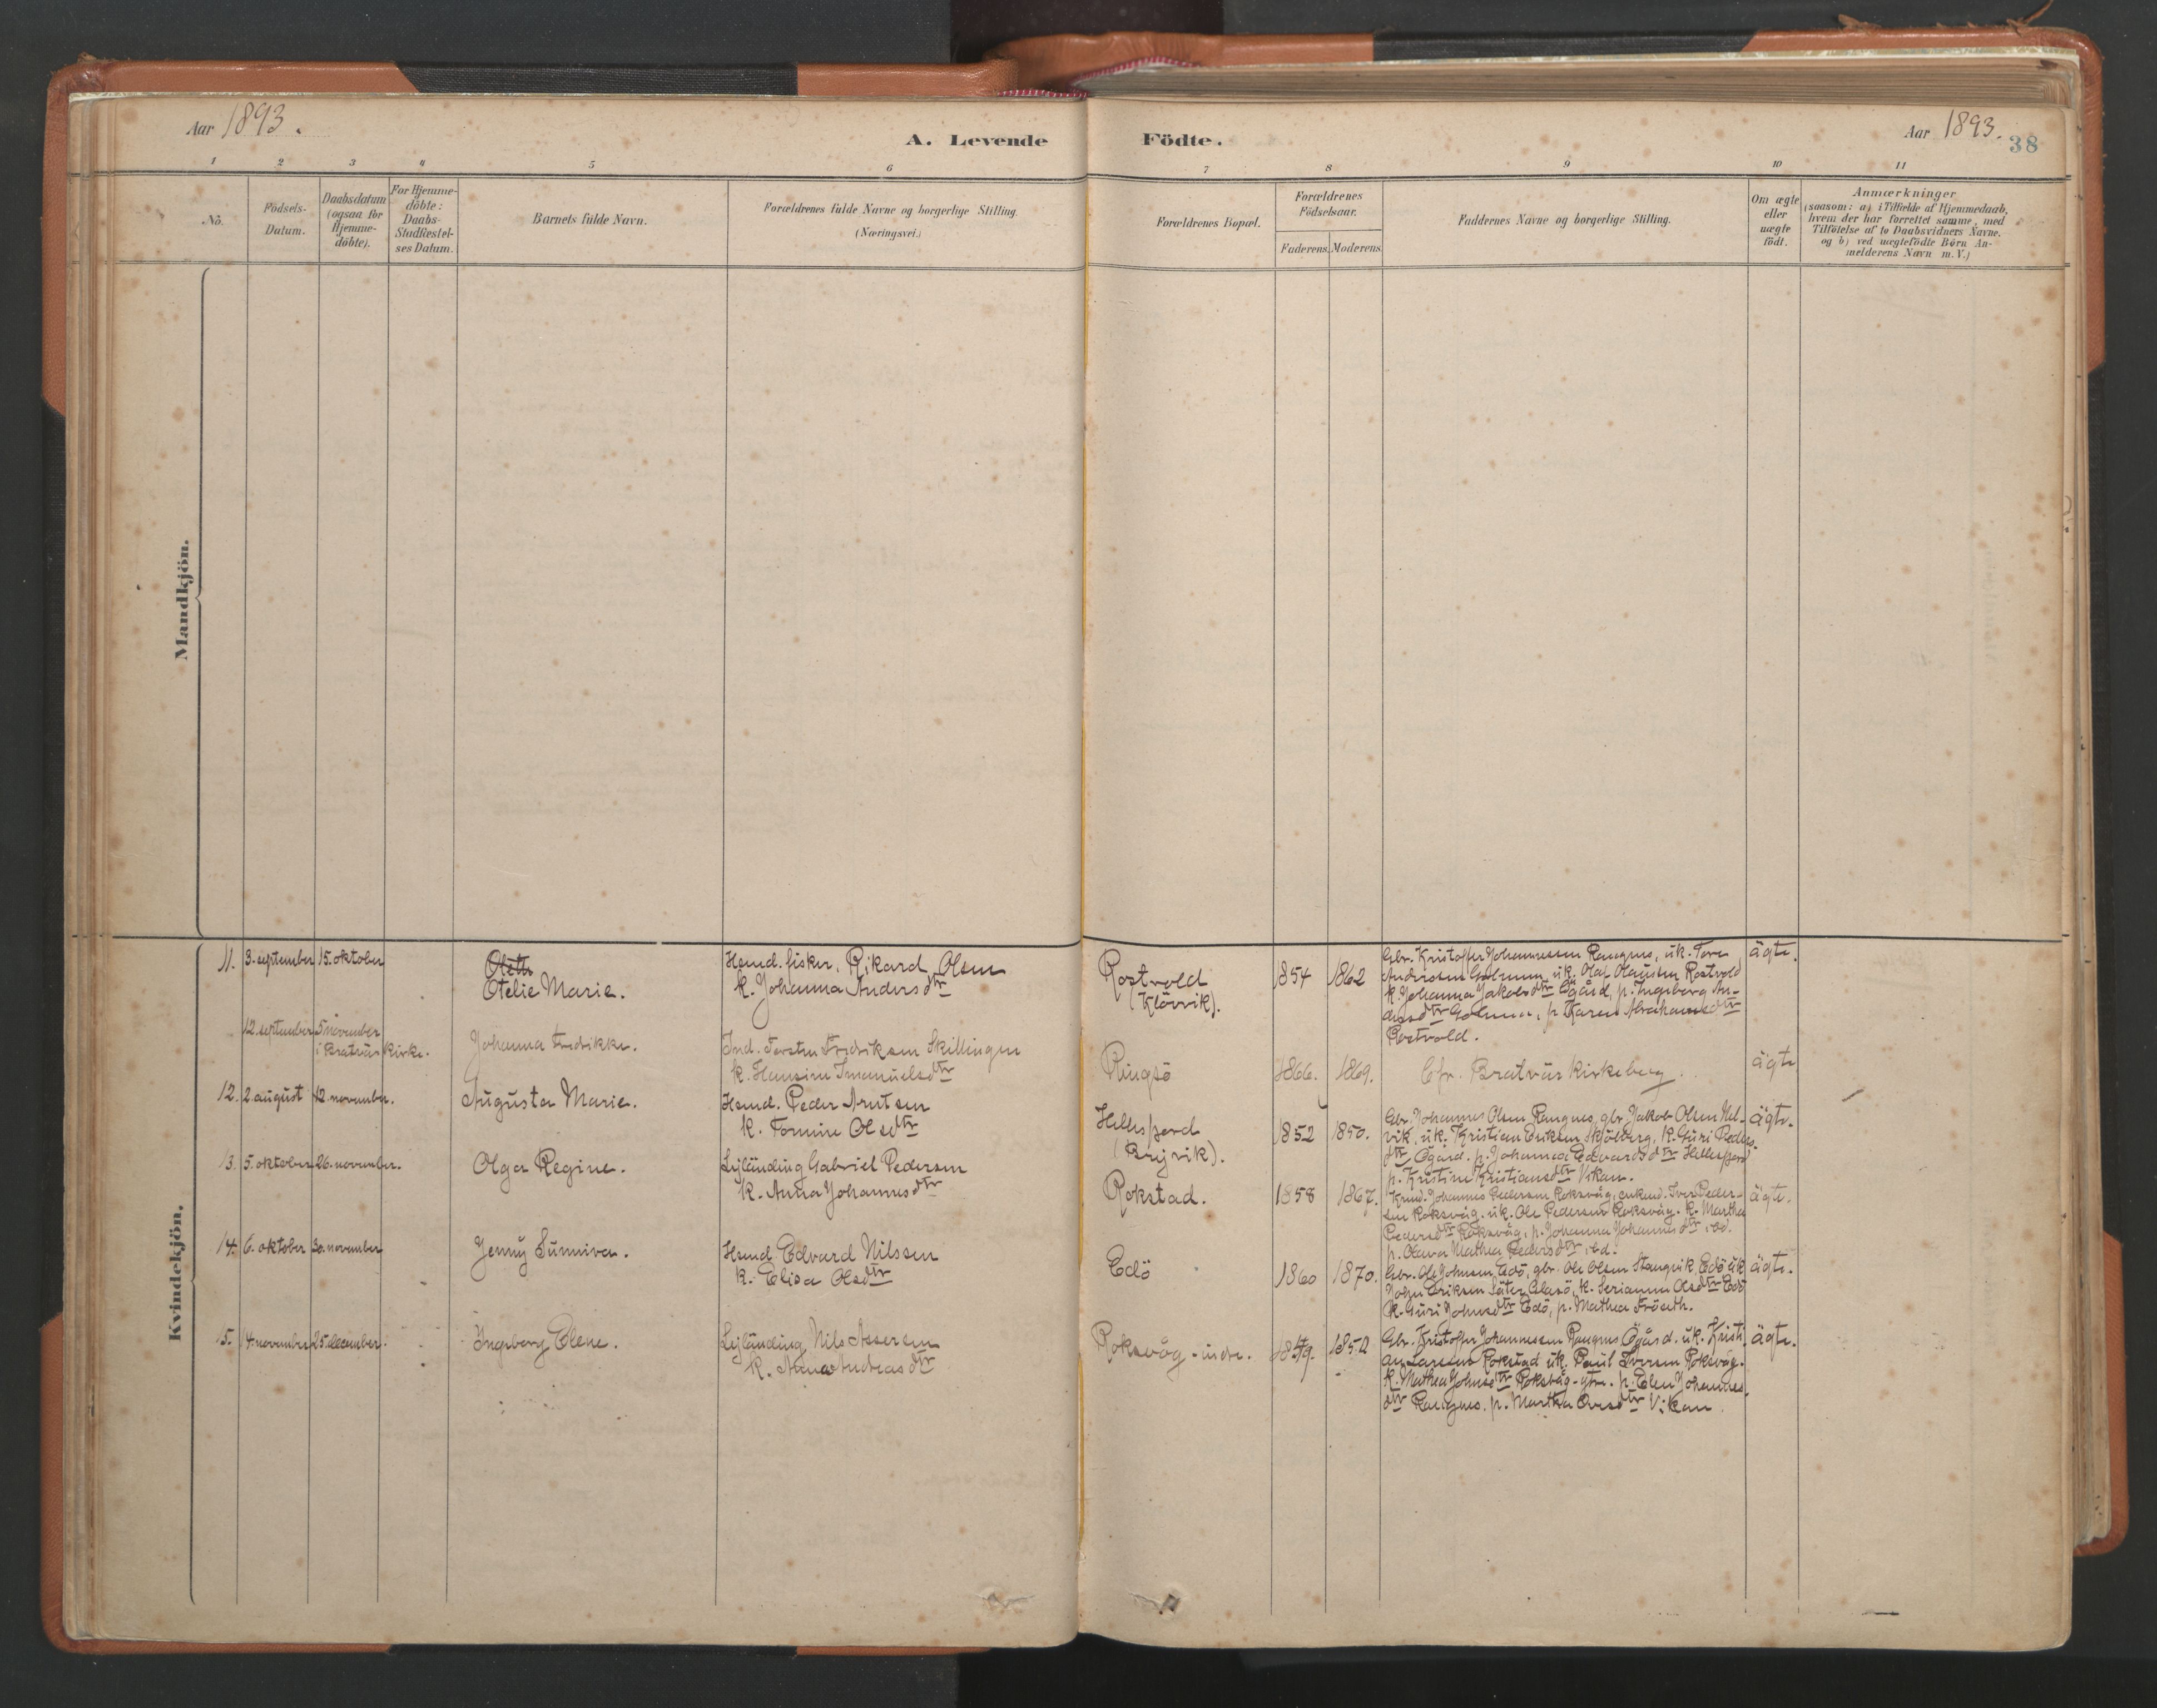 Aar 1893.
A. Levende Fødte.
Aar 1893.
38
1 2 3 4 5 6 7 8 9 10 11
No.
Födsels-
Datum.
Daabsdatum
(ogsaa for
Hjemme-
döbte).
For Hjemme-
döbte:
Daabs-
Stadfæstel-
ses Datum.
Barnets fulde Navn.
Forældrenes fulde Navne og borgerlige Stilling.
(Næringsvei.)
Forældrenes Bopæl.
Forældrenes
Födselsaar.
Faderens. Moderens
Faddernes Navne og borgerlige Stilling.
Om ægte
eller
uægte
födt.
Anmærkninger
(saasom: a) i Tilfælde af Hjemmedaab,
hvem der har forrettet samme, med
Tilföielse af to Daabsvidners Navne.
og b) ved uægtefödte Børn An-
melderens Navn m. V.)
Mandkjön.
Kvindekjön.
11. 3. september 15. oktober
Otelie Marie.
Hsmd. fisker. Rikard Olsen
k. Johanna Andersdtr
Rostvold
(Klövvik).
1854 1862
Gbr. Kristoffer Johannessen Rangnes, uk. Tore
Andersen uk. Olaf Olaussen Rostvold
k. Johanna Jakobsdtr Ögård, p. Ingeborg An-
dersdtr p. Karen Abrahamsdtr
Rostvold.
ägte.
12. september 5 november
i Bratvär kirke.
Johanna Fredrikke.
Ind. Torsten Fredriksen Skillingen
k. Hansine Imanuelsdtr
Ringsö
1866. 1869.
Cfr. Bratvär kirkebog.
ägte
12. 2. august 12. november.
Augusta Marie.
Hsmd. Peder Arntsen
k. Tomine Olsdtr
Hellesfjord
(Brejvik).
1852 1850.
Gbr. Johannes Olsen Rangnes, gbr. Jakob Olsen Nel-
vik, uk. Kristian Eriksen Skjölberg, k. Guri Peders-
dtr Ögård. p. Johanna Edvardsdtr Hellesfjord
p. Kristine Kristiansdtr Vikan.
ägte.
13. 5. oktober 26. november.
Olga Regine.
Lejländing Gabriel Pedersen
k. Anna Johannesdtr
Rokstad.
1858 1867.
Johannes Pedersen Roksvåg, enkemd. Iver Peder-
sen Roksvåg. uk. Ole Pedersen Roksvåg. k. Martha
Pedersdtr Roksvåg, p. Johanna Johannesdtr ibd.
p. Olava Mathea Pedersdtr ibd.
ägte.
14. 6. oktober 30. november
Jenny Sunniva.
Hsmd Edvard Nilssen
k. Elisa Olsdtr
Edö
1860 1870.
Gbr. Ole Johnsen Edö, gbr. Ole Olsen Stangvik, Edö uk.
John Eriksen Säter k. Serianna Olsdtr Edö
k. Guri Johnsdtr Edö, p. Mathea Fröseth.
ägte.
15. 14. november 25. december.
Ingeborg Elene.
Lejländing Nils Assersen
k. Anna Andreasdtr
Roksvåg - indre.
1852
Gbr. Kristoffer Johannessen Rangnes Ögård. uk. Kristi-
an Larssen Rokstad uk. Paul Iversen Roksvåg.
k. Mathea Johnsdtr Roksvåg-ytre. p. Elen Johannes-
dtr Rangnes, p. Martha Vikan.
ägte.